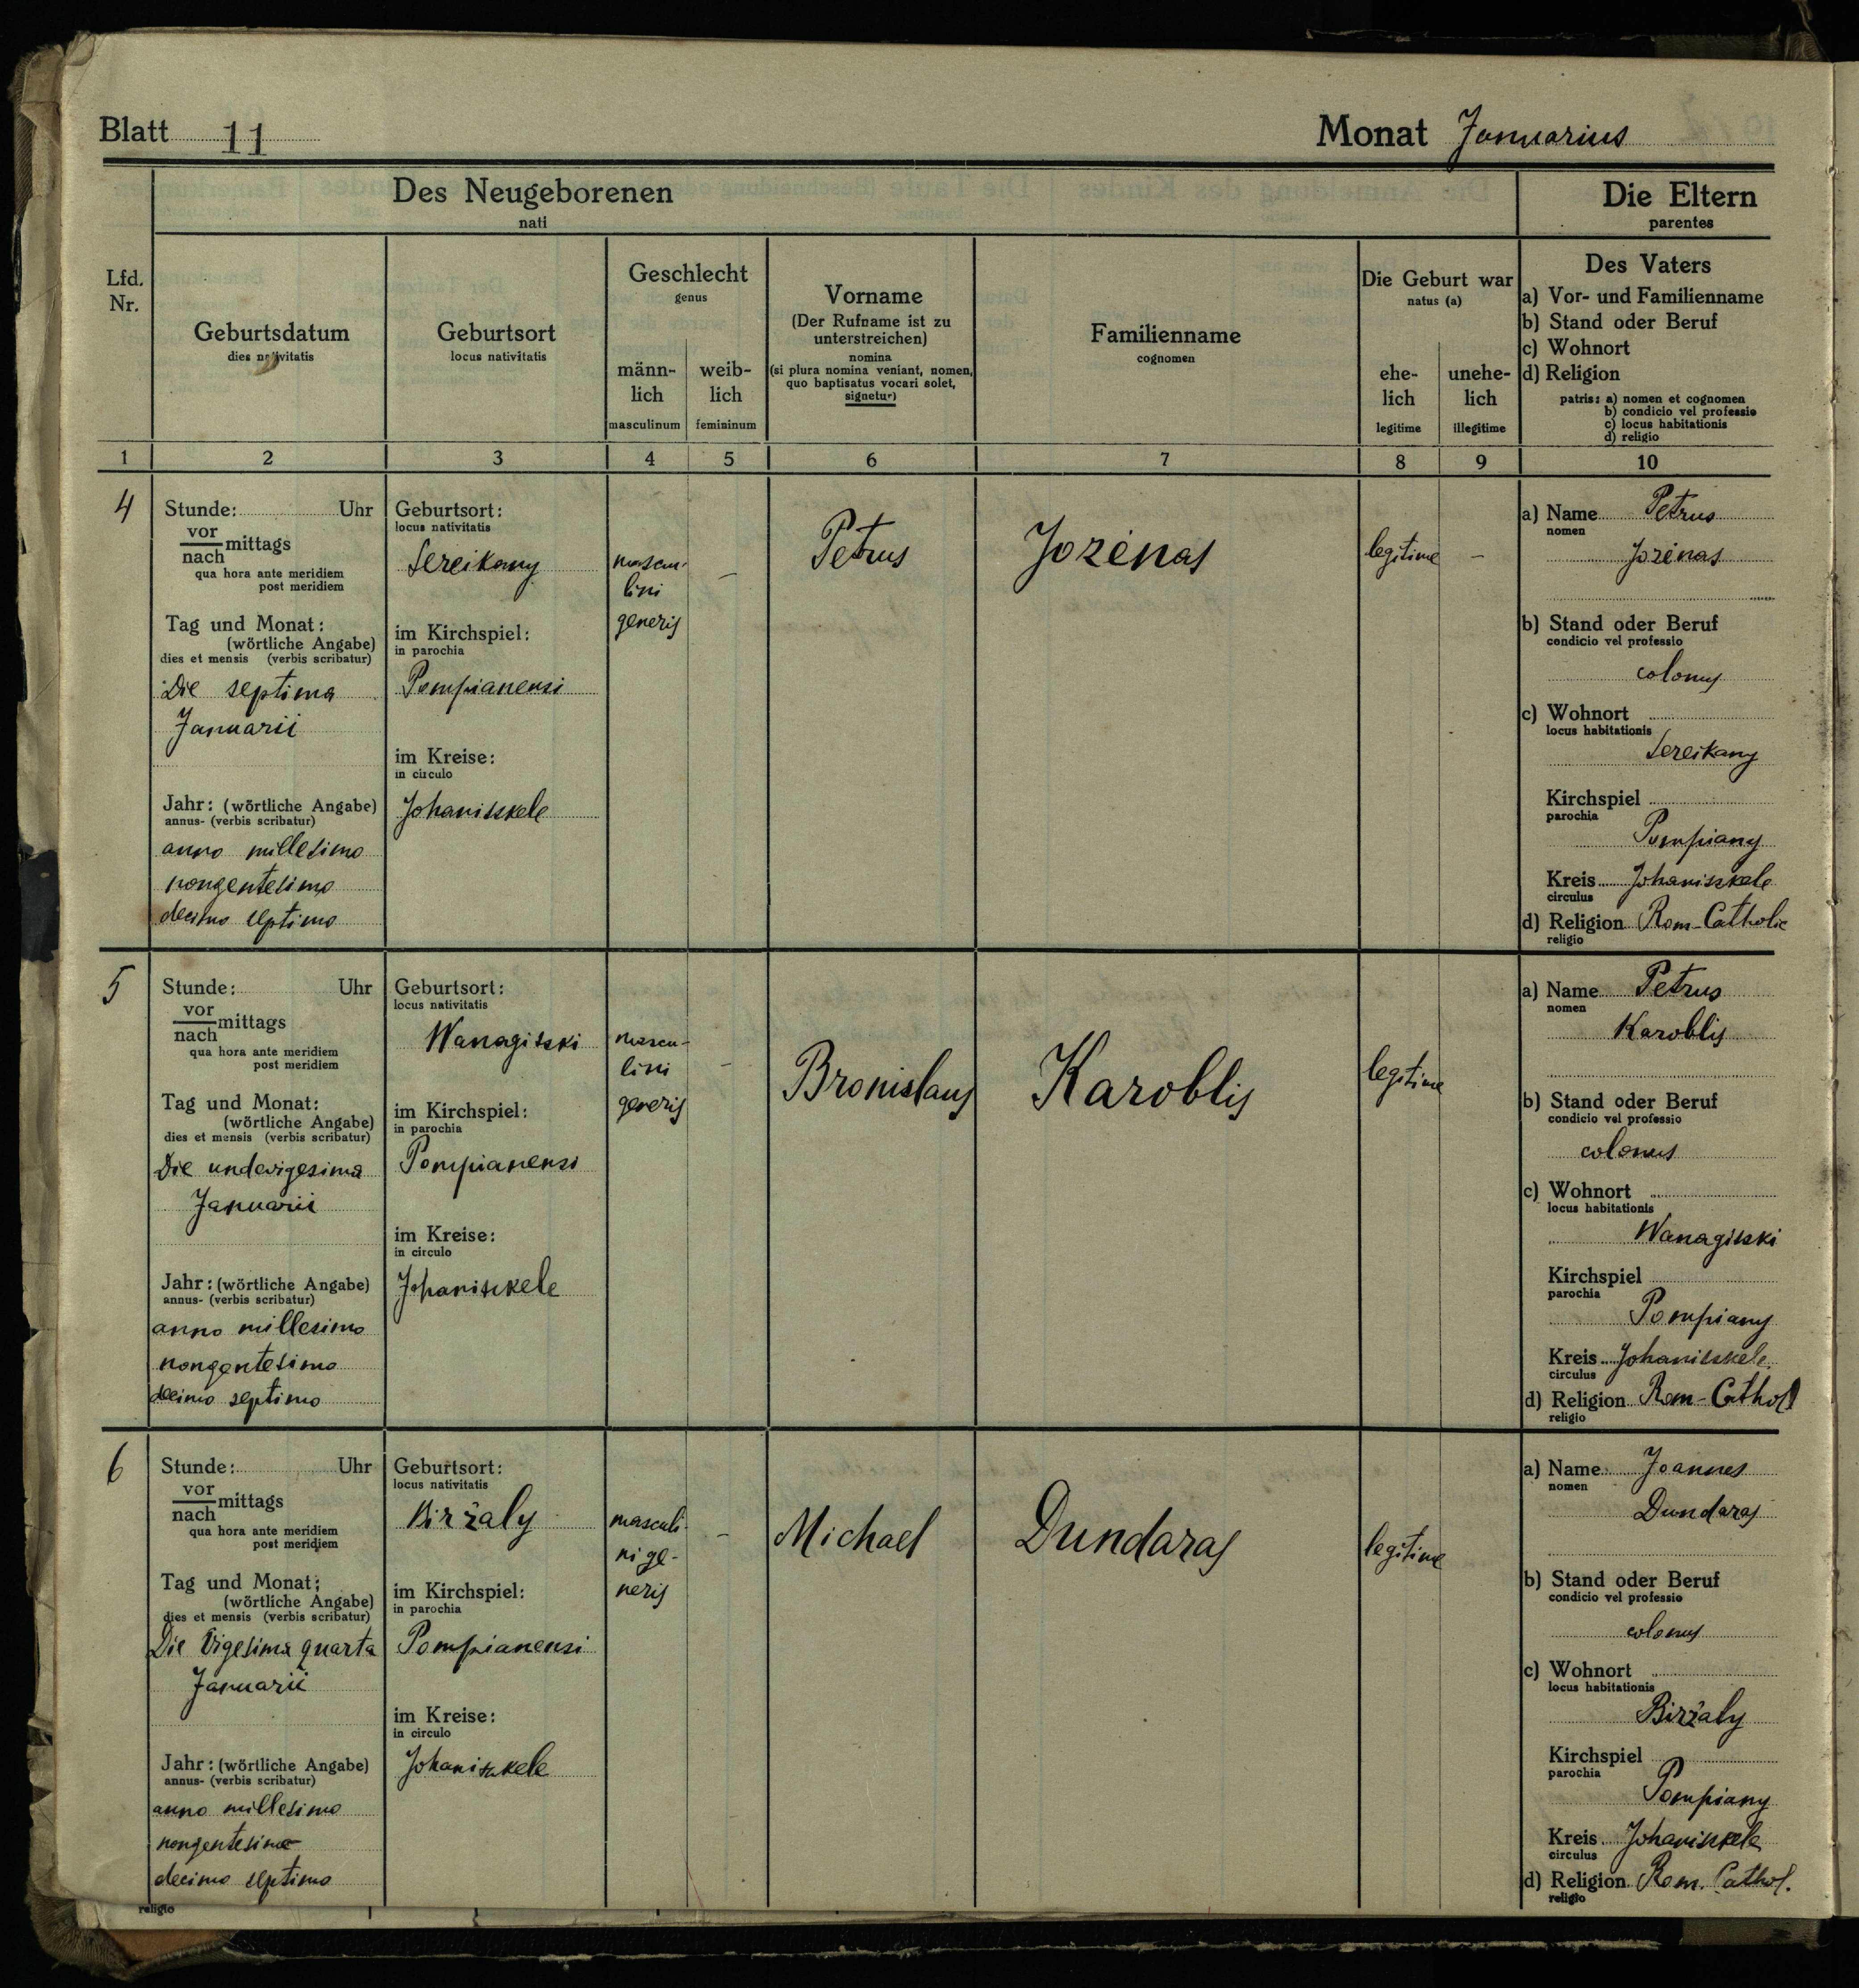 Blatt 11
Monat Januarius
Des Neugeborenen
nati
Die Eltern
parentes
Lfd.
Nr.
Geburtsdatum
dies nativitatis
Geburtsort
locus nativitatis
Geschlecht
genus
männ-
lich
masculinum
weib-
lich
femininum
Vorname
(Der Rufname ist zu
unterstreichen)
nomina
(si plura nomina veniant, nomen,
quo baptisatus vocari solet,
signetur)
Familienname
cognomen
Die Geburt war
natus (a)
ehe-
lich
legitime
unehe-
lich
illegitime
Des Vaters
a) Vor- und Familienname
b) Stand oder Beruf
c) Wohnort
d) Religion
patris: a) nomen et cognomen
b) condicio vel professio
c) locus habitationis
d) religio
1 2 3 4 5 6 7 8 9 10
4
Stunde: Uhr
vor
nach mittags
qua hora ante meridiem
post meridiem
Tag und Monat:
(wörtliche Angabe)
dies et mensis (verbis scribatur)
Die septima
Januarii
Jahr: (wörtliche Angabe)
annus- (verbis scribatur)
anno millesimo
nongentesimo
decimo septimo
Geburtsort:
locus nativitatis
Sereikany
im Kirchspiel:
in parochia
Pompianensi
im Kreise:
in circulo
Johaniszkele
mascu-
lini
generis
–
Petrus
Jozėnas
legitime
–
a) Name Petrus
nomen
Jozėnas
b) Stand oder Beruf
condicio vel professio
colonus
c) Wohnort
locus habitationis
Sereikany
Kirchspiel
parochia
Pompiany
Kreis Johaniszkele
circulus
d) Religion Rom-Catholic
religio
5
Stunde: Uhr
vor
nach mittags
qua hora ante meridiem
post meridiem
Tag und Monat:
(wörtliche Angabe)
dies et mensis (verbis scribatur)
Die undevigesima
Januarii
Jahr: (wörtliche Angabe)
annus- (verbis scribatur)
anno millesimo
nongentesimo
decimo septimo
Geburtsort:
locus nativitatis
Wanagiszki
im Kirchspiel:
in parochia
Pompianensi
im Kreise:
in circulo
Johaniszkele
mascu-
lini
generis
–
Bronislaus
Karoblis
legitime
a) Name Petrus
nomen
Karoblis
b) Stand oder Beruf
condicio vel professio
colonus
c) Wohnort
locus habitationis
Wanagiszki
Kirchspiel
parochia
Pompiany
Kreis Johaniszkele
circulus
d) Religion Rom-Cathol
religio
6
Stunde: Uhr
vor
nach mittags
qua hora ante meridiem
post meridiem
Tag und Monat:
(wörtliche Angabe)
dies et mensis (verbis scribatur)
Die Vigesima quarta
Januarii
Jahr: (wörtliche Angabe)
annus- (verbis scribatur)
anno millesimo
nongentesimo
decimo septimo
Geburtsort:
locus nativitatis
Biržaly
im Kirchspiel:
in parochia
Pompianensi
im Kreise:
in circulo
Johaniszkele
masculi-
ni ge-
neris
–
Michael
Dundaras
legitime
a) Name Joannes
nomen
Dundaras
b) Stand oder Beruf
condicio vel professio
colonus
c) Wohnort
locus habitationis
Biržaly
Kirchspiel
parochia
Pompiany
Kreis Johaniszkele
circulus
d) Religion Rom. Cathol.
religio
religio